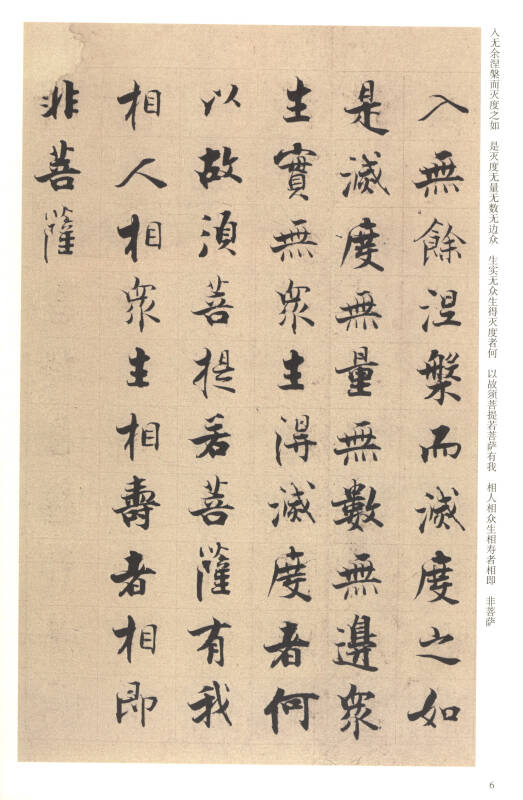 入無餘涅槃而滅度之如
是滅度無量無數無邊衆
生實無衆生得滅度者何
以故須菩提若菩薩有我
相人相衆生相壽者相即
非菩薩
入无余涅槃而灭度之如 是灭度无量无数无边众 生实无众生得灭度者何 以故须菩提若菩萨有我 相人相众生相寿者相即 非菩萨
6